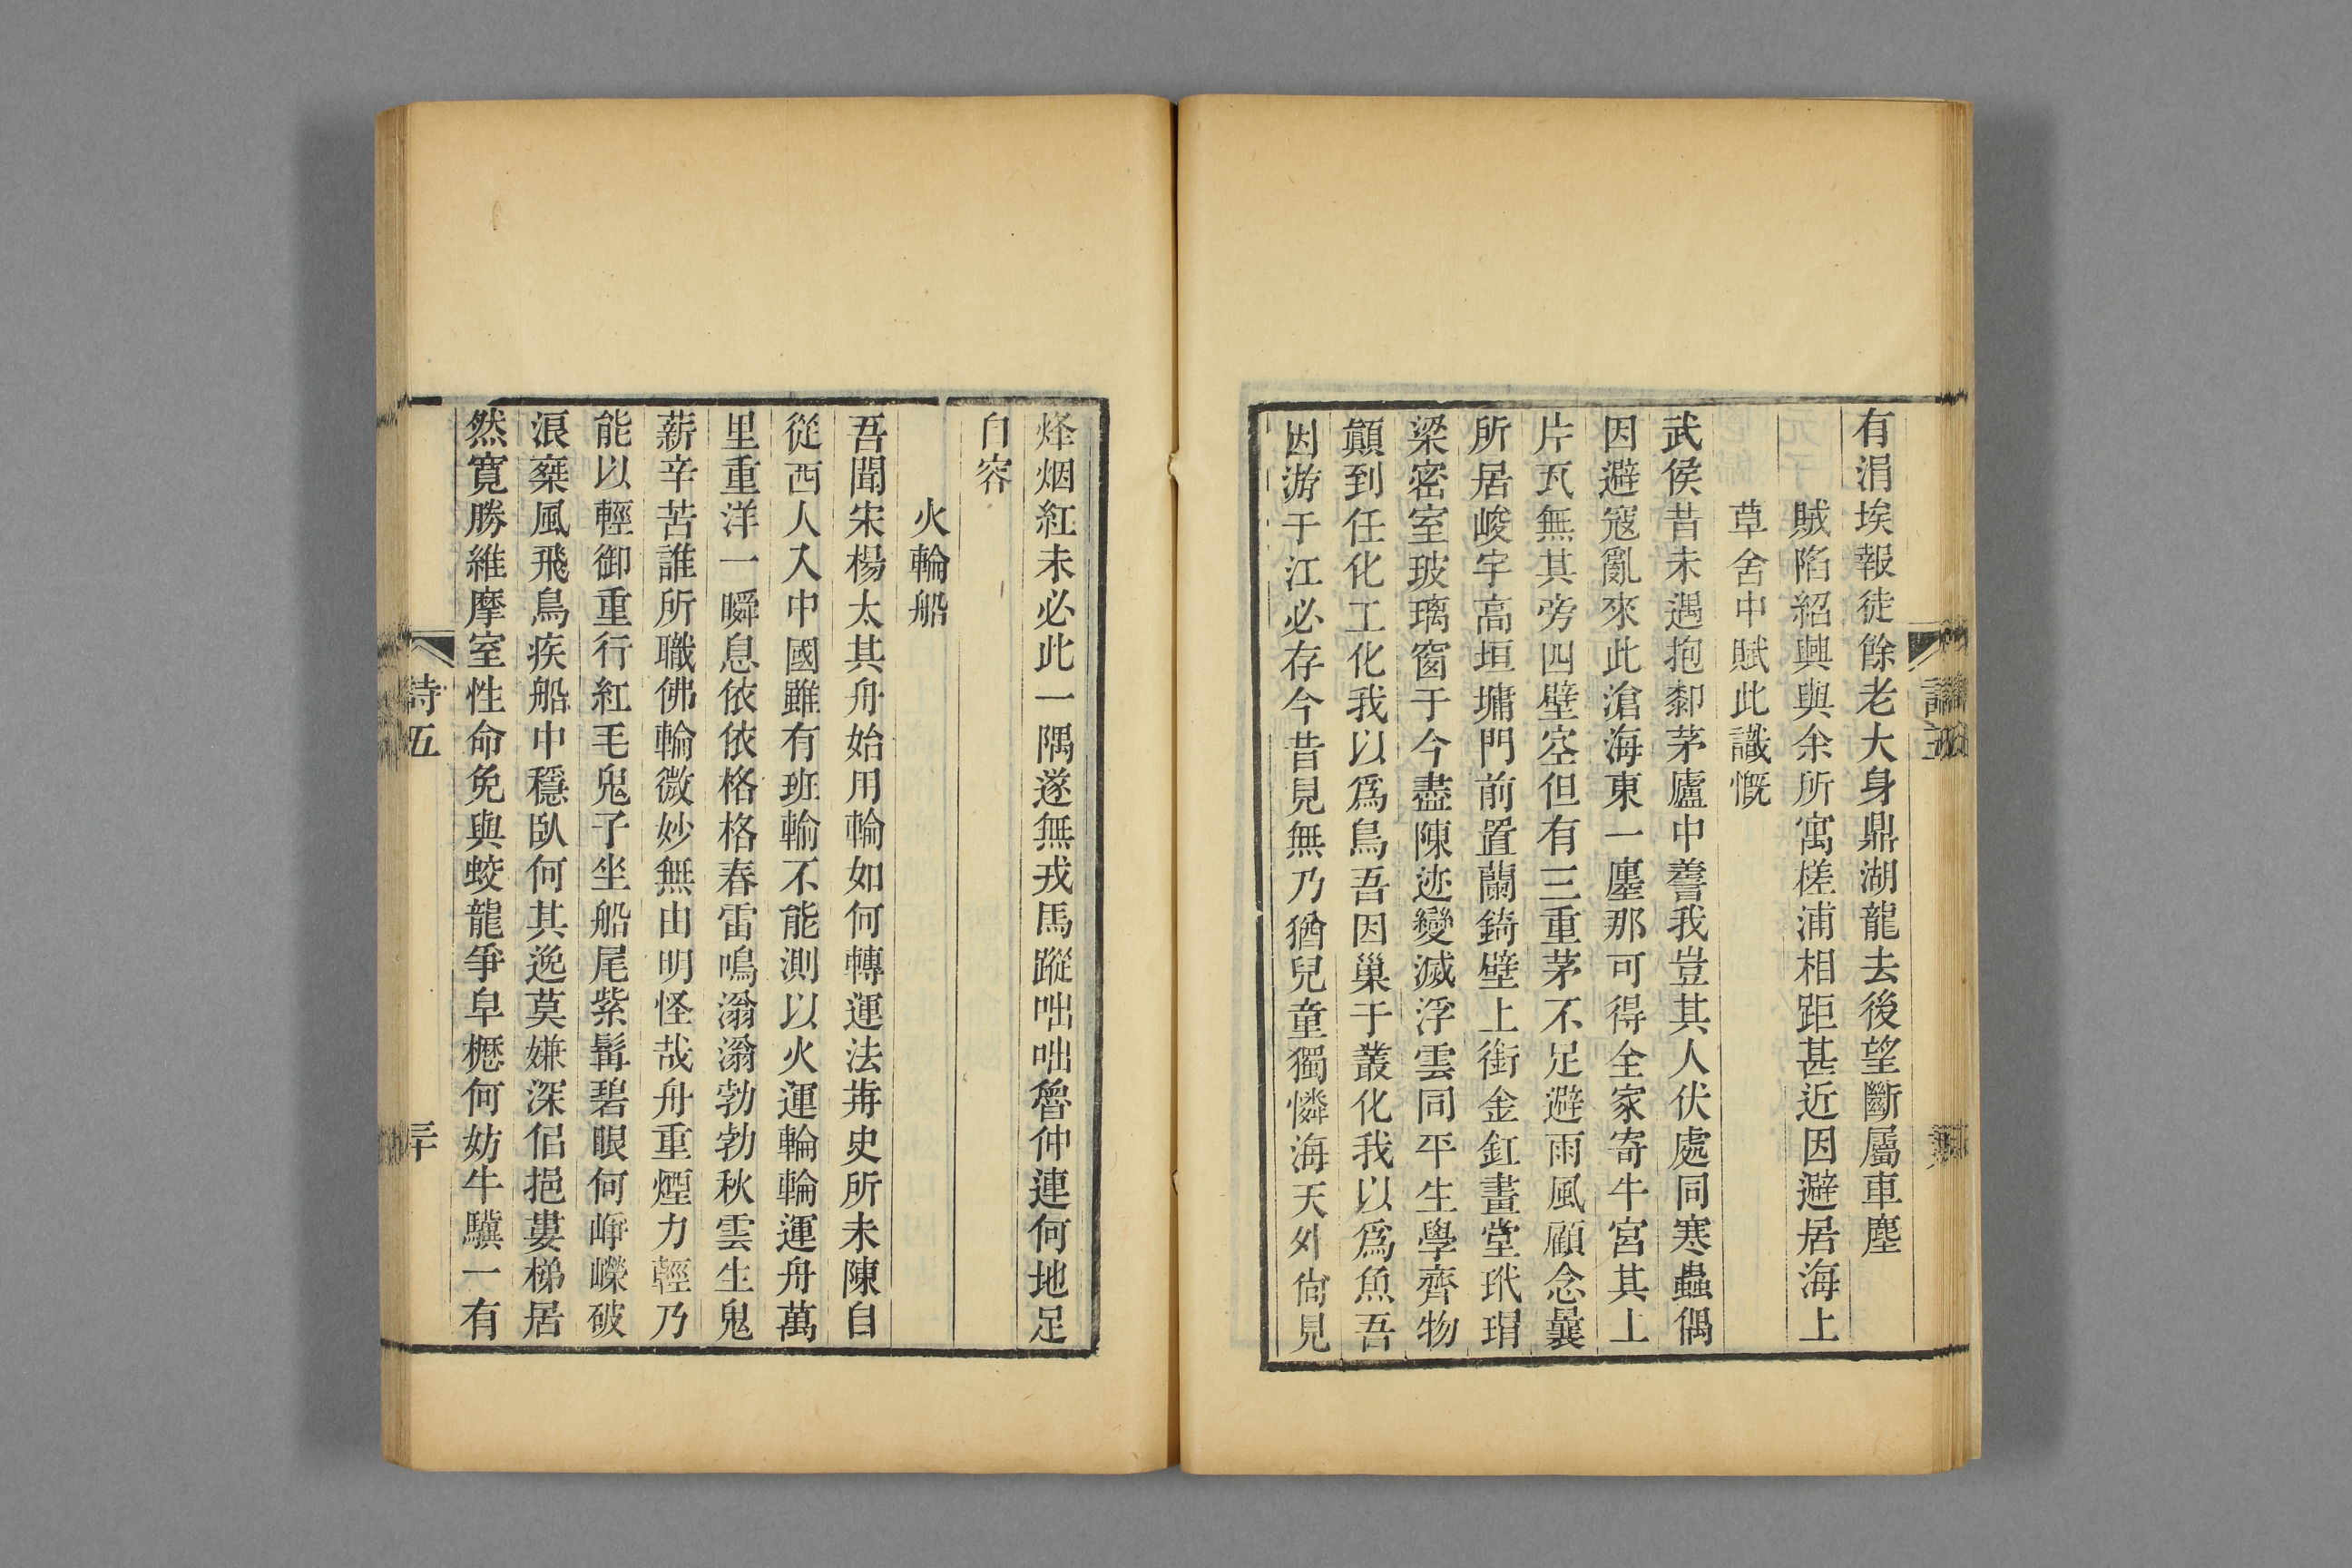 有涓埃報徒餘老大身鼎湖龍去後望斷屬車塵
賊陷紹興與余所寓槎浦相距甚近因避居海上
草舍中賦此識慨
武侯昔未遇抱膝茅廬中嗟我豈其人伏處同寒蟲偶
因避寇亂來此滄海東一廛那可得全家寄牛宮其上
片瓦無其旁四壁空但有三重茅不足避雨風顧念曩
所居峻宇高垣墉門前置蘭錡壁上銜金釭畫堂玳瑁
梁密室玻璃窗于今盡陳迹變滅浮雲同平生學齊物
顛到任化工化我以爲鳥吾因巢于叢化我以爲魚吾
因游于江必存今昔見無乃猶兒童獨憐海天外尙見
烽烟紅未必此一隅遂無戎馬蹤咄咄魯仲連何地足
自容
火輪船
吾聞宋楊太其舟始用輪如何轉運法再史所未陳自
從西人入中國雖有班輸不能測以火運輪輪運舟萬
里重洋一瞬息依依格格春雷鳴滃滃勃勃秋雲生鬼
薪辛苦誰所職佛輪微妙無由明怪哉舟重煙力輕乃
能以輕御重行紅毛鬼子坐船尾紫髯碧眼何崢嶸破
浪椉風飛鳥疾船中穩臥何其逸莫嫌深侶挹婁梯居
然寬勝維摩室性命免與蛟龍爭皁櫪何妨牛驥一有
詩五
三十